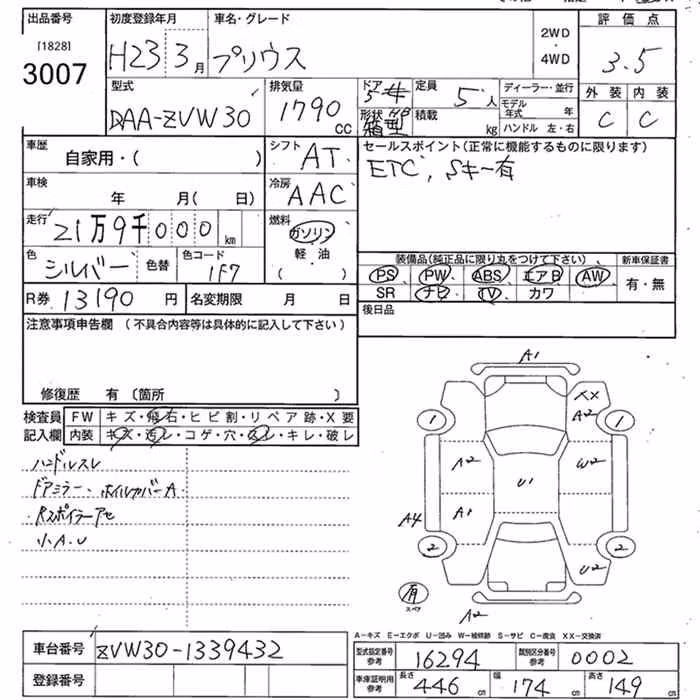 出品番号
[1828]
3007
初度登録年月
H23 3月
車名・グレード
プリウス
2WD
・
4WD
評価点
3.5
外装 内装
C C
型式
DAA-ZVW30
排気量
1790 cc
ドア
5
形状
箱型
定員
5人
積載
kg
ディーラー・並行
モデル年式 年
ハンドル 左・右
車歴
自家用・( )
シフト
AT
セールスポイント(正常に機能するものに限ります)
ETC、Sキー有
車検
年 月( 日)
冷房
AAC
走行
21万9千000km
燃料
ガソリン
軽・油
( )
色
シルバー
色替
色コード
1F7
装備品(純正品に限り丸をつけて下さい)
新車保証書
PS PW ABS エアB AW
SR ナビ TV カワ
有・無
R券 13190 円
名変期限 月 日
後日品
注意事項申告欄 (不具合内容等は具体的に記入して下さい)
修復歴 有 (箇所 )
検査員記入欄
FW キズ・飛石・ヒビ割・リペア跡・X要
内装 キズ・汚レ・コゲ・穴・スレ・キレ・破レ
ハンドルスレ
ドアミラー、ホイルカバーA
Rスポイラーアセ
小A.U
A1
XX
A2
1
1
A2
W2
U1
A1
A4
2
2
U2
有
スペア
A2
A-キズ E-エクボ U-凹み W-補修跡 S-サビ C-腐食 XX-交換済
車台番号 ZVW30-1339432
登録番号
型式指定番号
参考
16294
類別区分番号
参考
0002
車庫証明用
参考
長さ 446 cm
幅 174 cm
高さ 149 cm